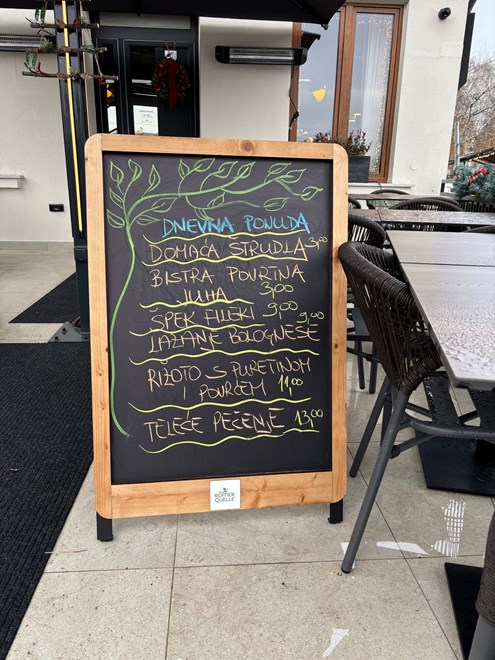 DNEVNA PONUDA
DOMAĆA ŠTRUDLA 3,00
BISTRA POVRTNA
JUHA 3,00
ŠPEK FILEKI 9,00
LAZANJE BOLOGNESE 9,00
RIŽOTO S PURETINOM
I POVRĆEM 11,00
TELEĆE PEČENJE 13,00
RÖMER
QUELLE